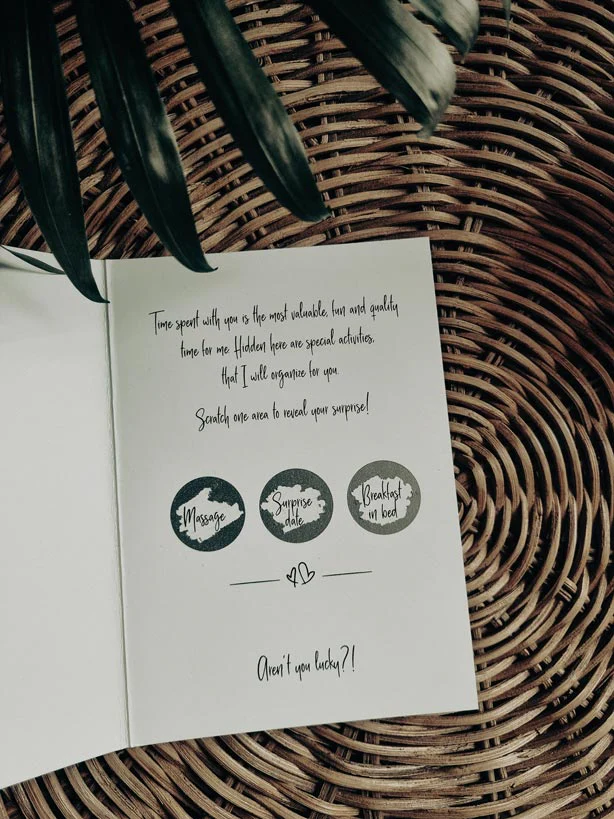 Time spent with you is the most valuable, fun and quality
time for me. Hidden here are special activities,
that I will organize for you.
Scratch one area to reveal your surprise!
Massage
Surprise
date
Breakfast
in bed
Aren't you lucky?!